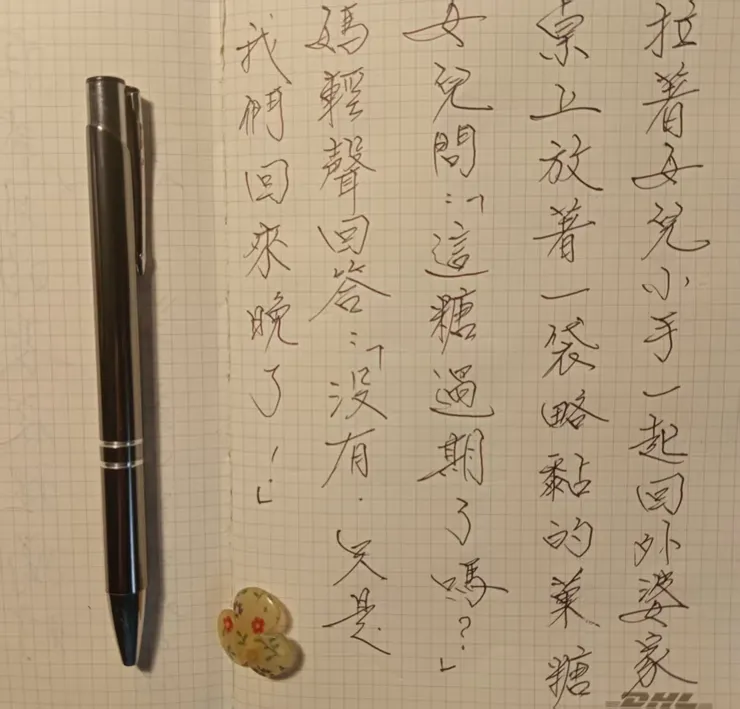 拉著女兒小手一起回外婆家
桌上放著一袋略黏的菓糖
女兒問：「這糖過期了嗎？」
媽輕聲回答：「沒有．只是
我們回來晚了！」
DHL